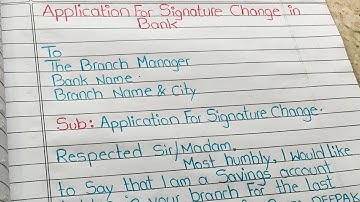 Application For Signature Change in
Bank
To
The Branch Manager
Bank Name.
Branch Name & City
Sub: Application For Signature Change.
Respected Sir/Madam,
Most humbly, I would like
to Say that I am a Savings account
in your branch For the last
DEEPAK